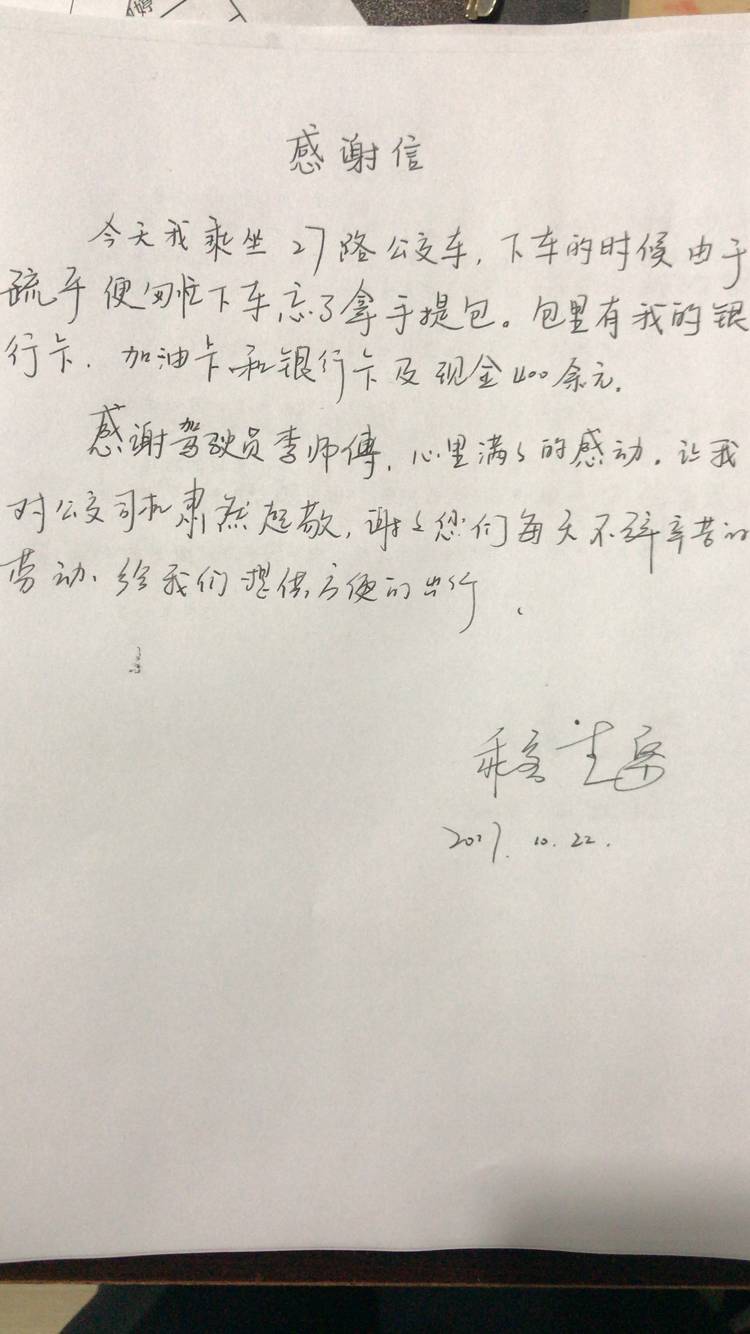 感谢信
今天我乘坐27路公交车,下车的时候由于
疏乎便匆忙下车忘了拿手提包。包里有我的银
行卡.加油卡和银行卡及现金400余元.
感谢驾驶员李师傅,心里满々的感动.让我
对公交司机肃然起敬,谢々您们每天不辞辛苦的
劳动、给我们提供方便的出行.
乘客
2017.10.22.